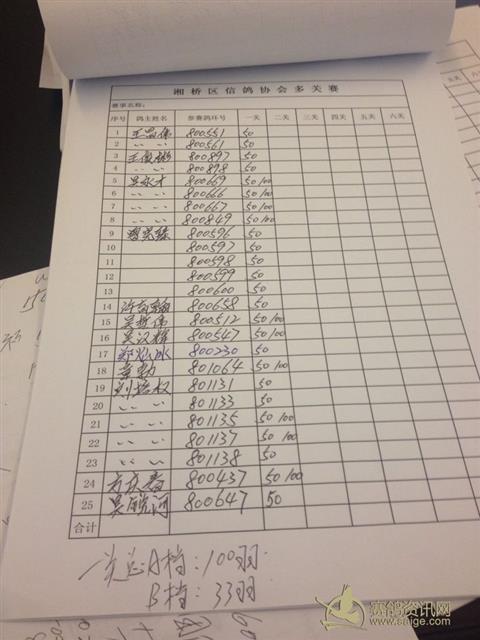 湘桥区信鸽协会多关赛
赛事名称:
序号 鸽主姓名 参赛鸽环号 一关 二关 三关 四关 五关 六关
1 800551 50
2 〃 〃 800561 50
3 800897 50
4 〃 〃 800898 50
5 吴永才 800669 50 100
6 〃 〃 800666 50 100
7 〃 〃 800667 50 100
8 〃 〃 800849 50 100
9 800596 50
10 800597 50
11 800598 50
12 800599 50
13 800600 50
14 800658 50
15 800512 50 100
16 吴汉辉 800547 50 100
17 800230 50
18 801064 50 100
19 刘培权 801131 50
20 〃 〃 801133 50
21 〃 〃 801135 50 100
22 〃 〃 801137 50 100
23 〃 〃 801138 50
24 800437 50 100
25 800647 50
合计
一关总A档:100羽
B档:33羽
五关 六关
赛鸽资讯网
www.saige.com